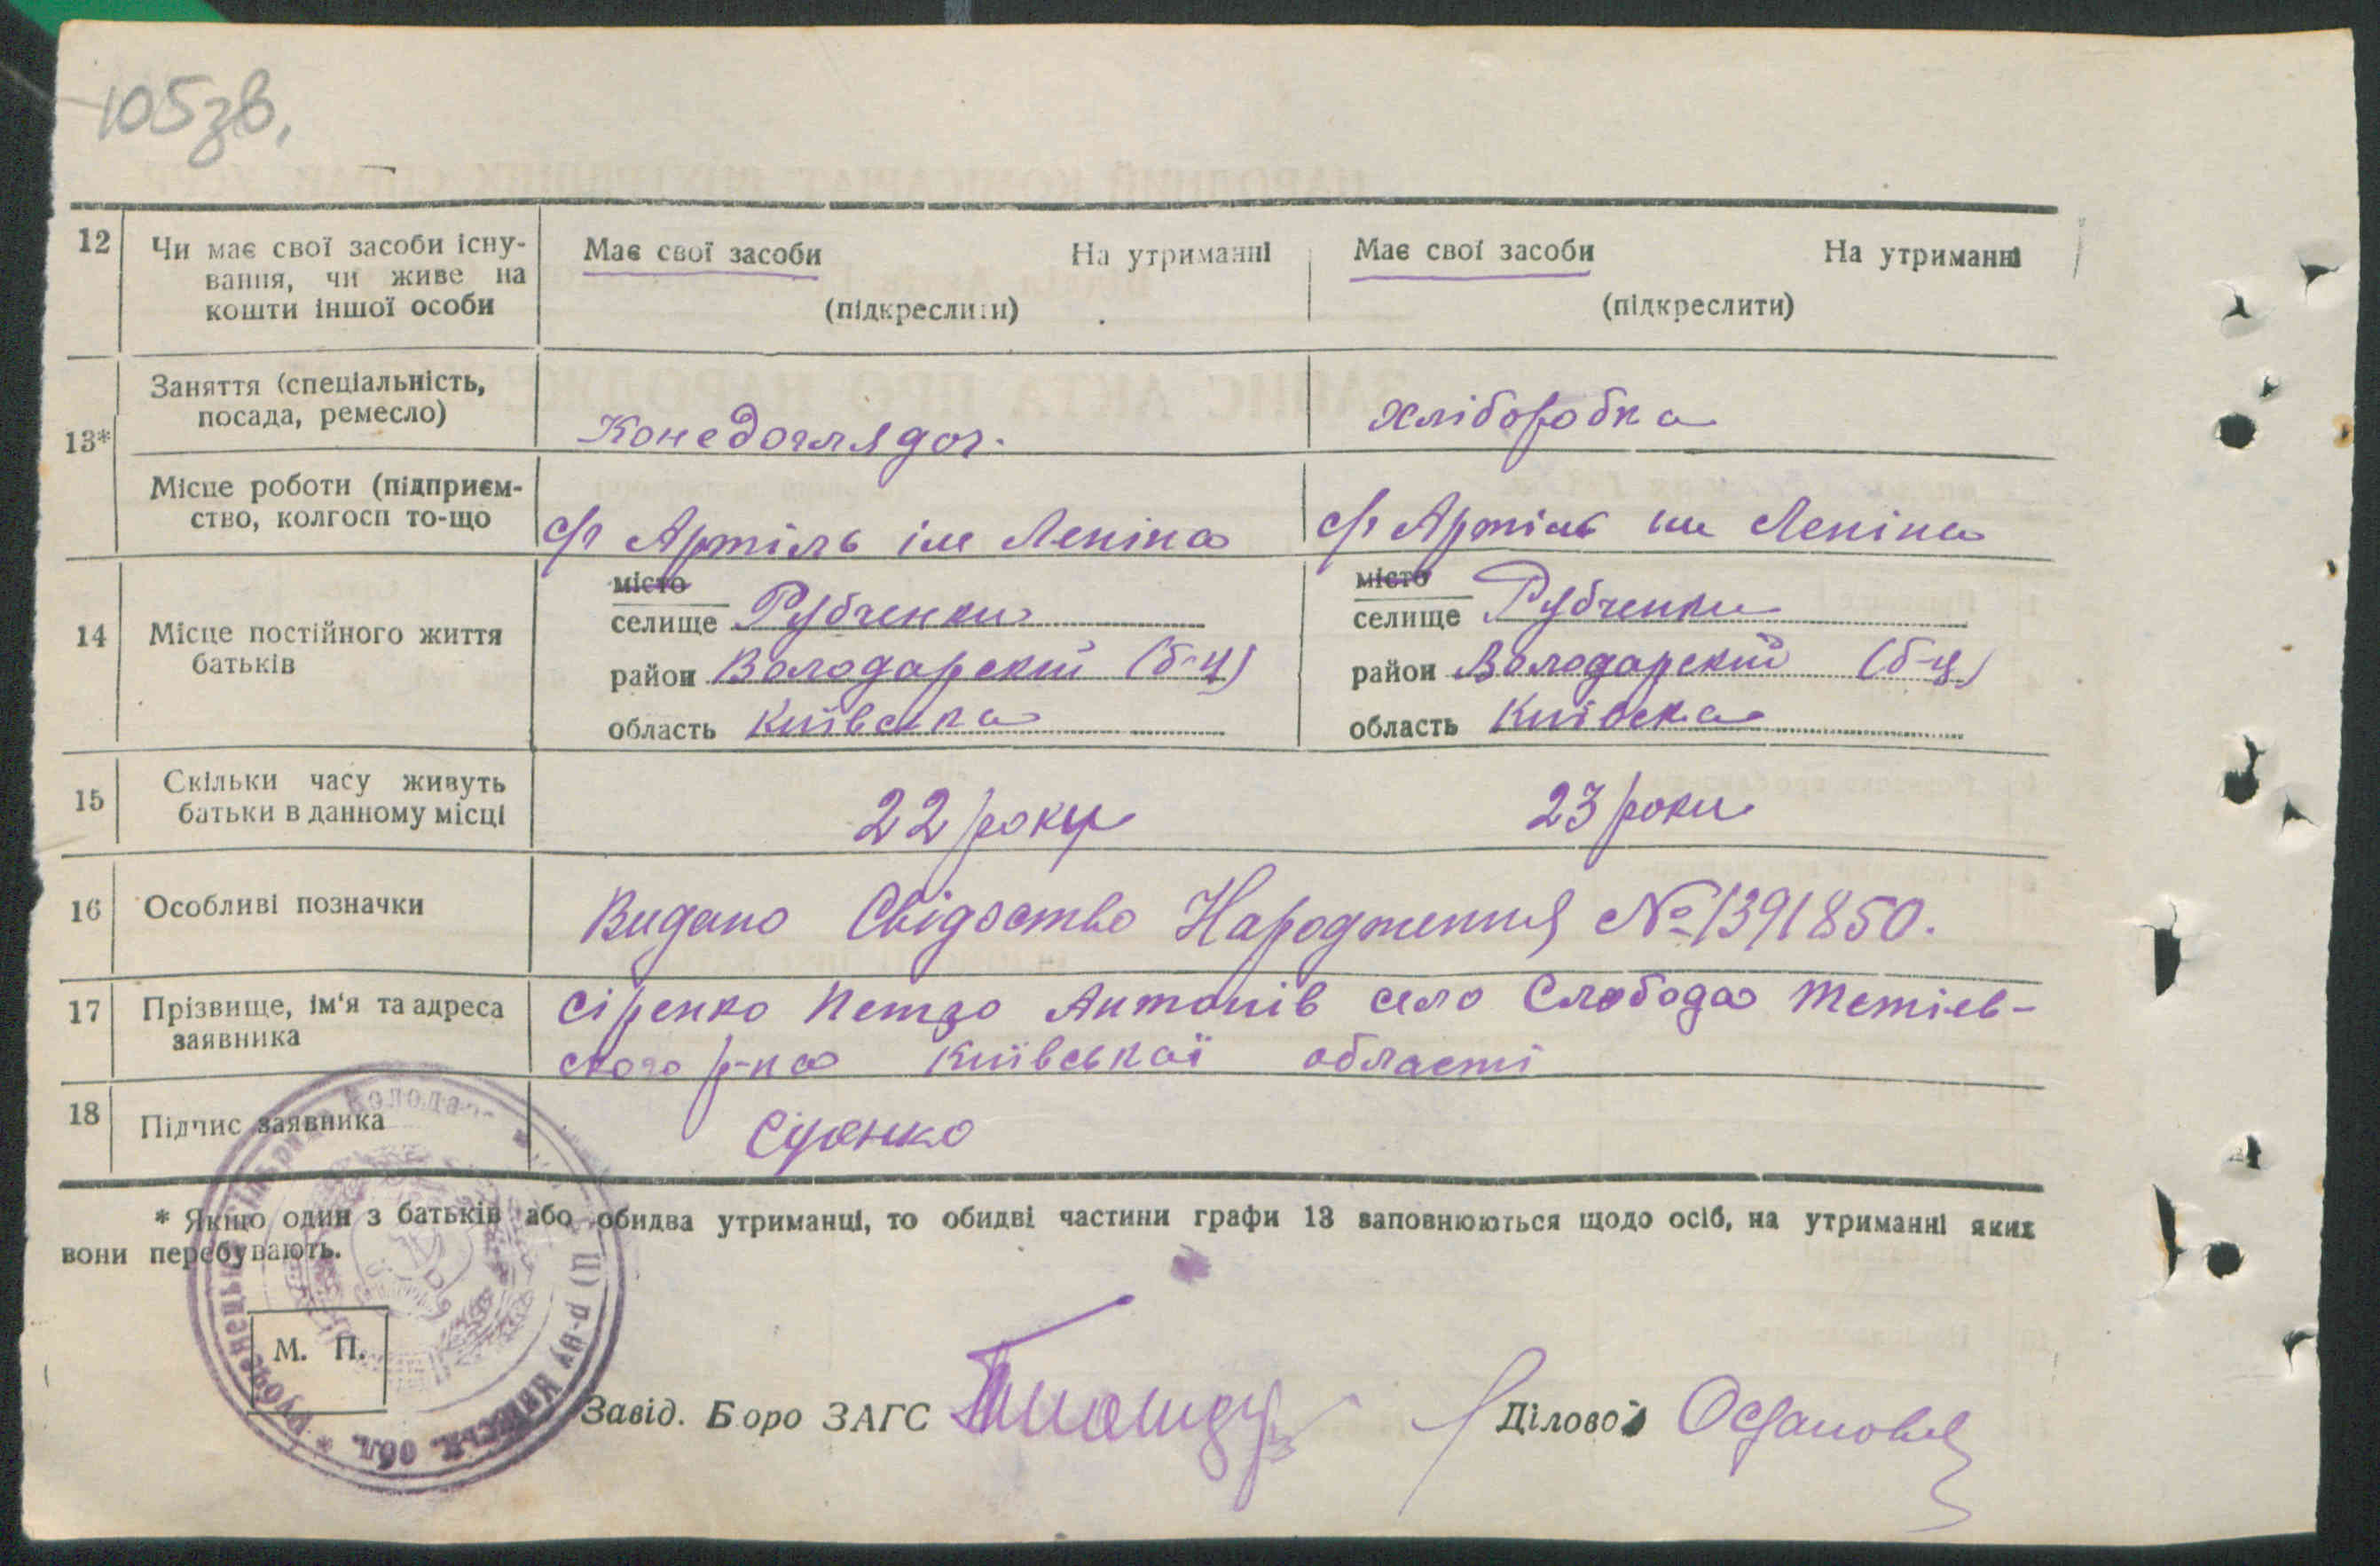 105зв.
12 Чи має свої засоби існу-
вання, чи живе на
кошти іншої особи
Має свої засоби На утриманні
(підкреслити)
Має свої засоби На утриманні
(підкреслити)
13*
Заняття (спеціальність,
посада, ремесло)
Конедоглядач.
Хліборобка
Місце роботи (підприєм-
ство, колгосп то-що
с/г Артіль ім Леніна
с/г Артіль им Леніна
14 Місце постійного життя
батьків
місто
селище Рубченки
район Володарский (б-ц)
область Київська
місто
селище Рубченки
район Володарский (б-ц)
область Київска
15 Скільки часу живуть
батьки в данному місці
22 року
23 роки
16 Особливі позначки
Видано Свідоство Народження № 1391850.
17 Прізвище, ім'я та адреса
заявника
Сіренко Петро Антонів село Слобода Тетіев-
ского р-на Київської області
18 Підпис заявника
* Якщо один з батьків або обидва утриманці, то обидві частини графи 13 заповнюються щодо осіб, на утриманні яких
вони перебувають.
М. П.
Завід. Бюро ЗАГС
Діловод